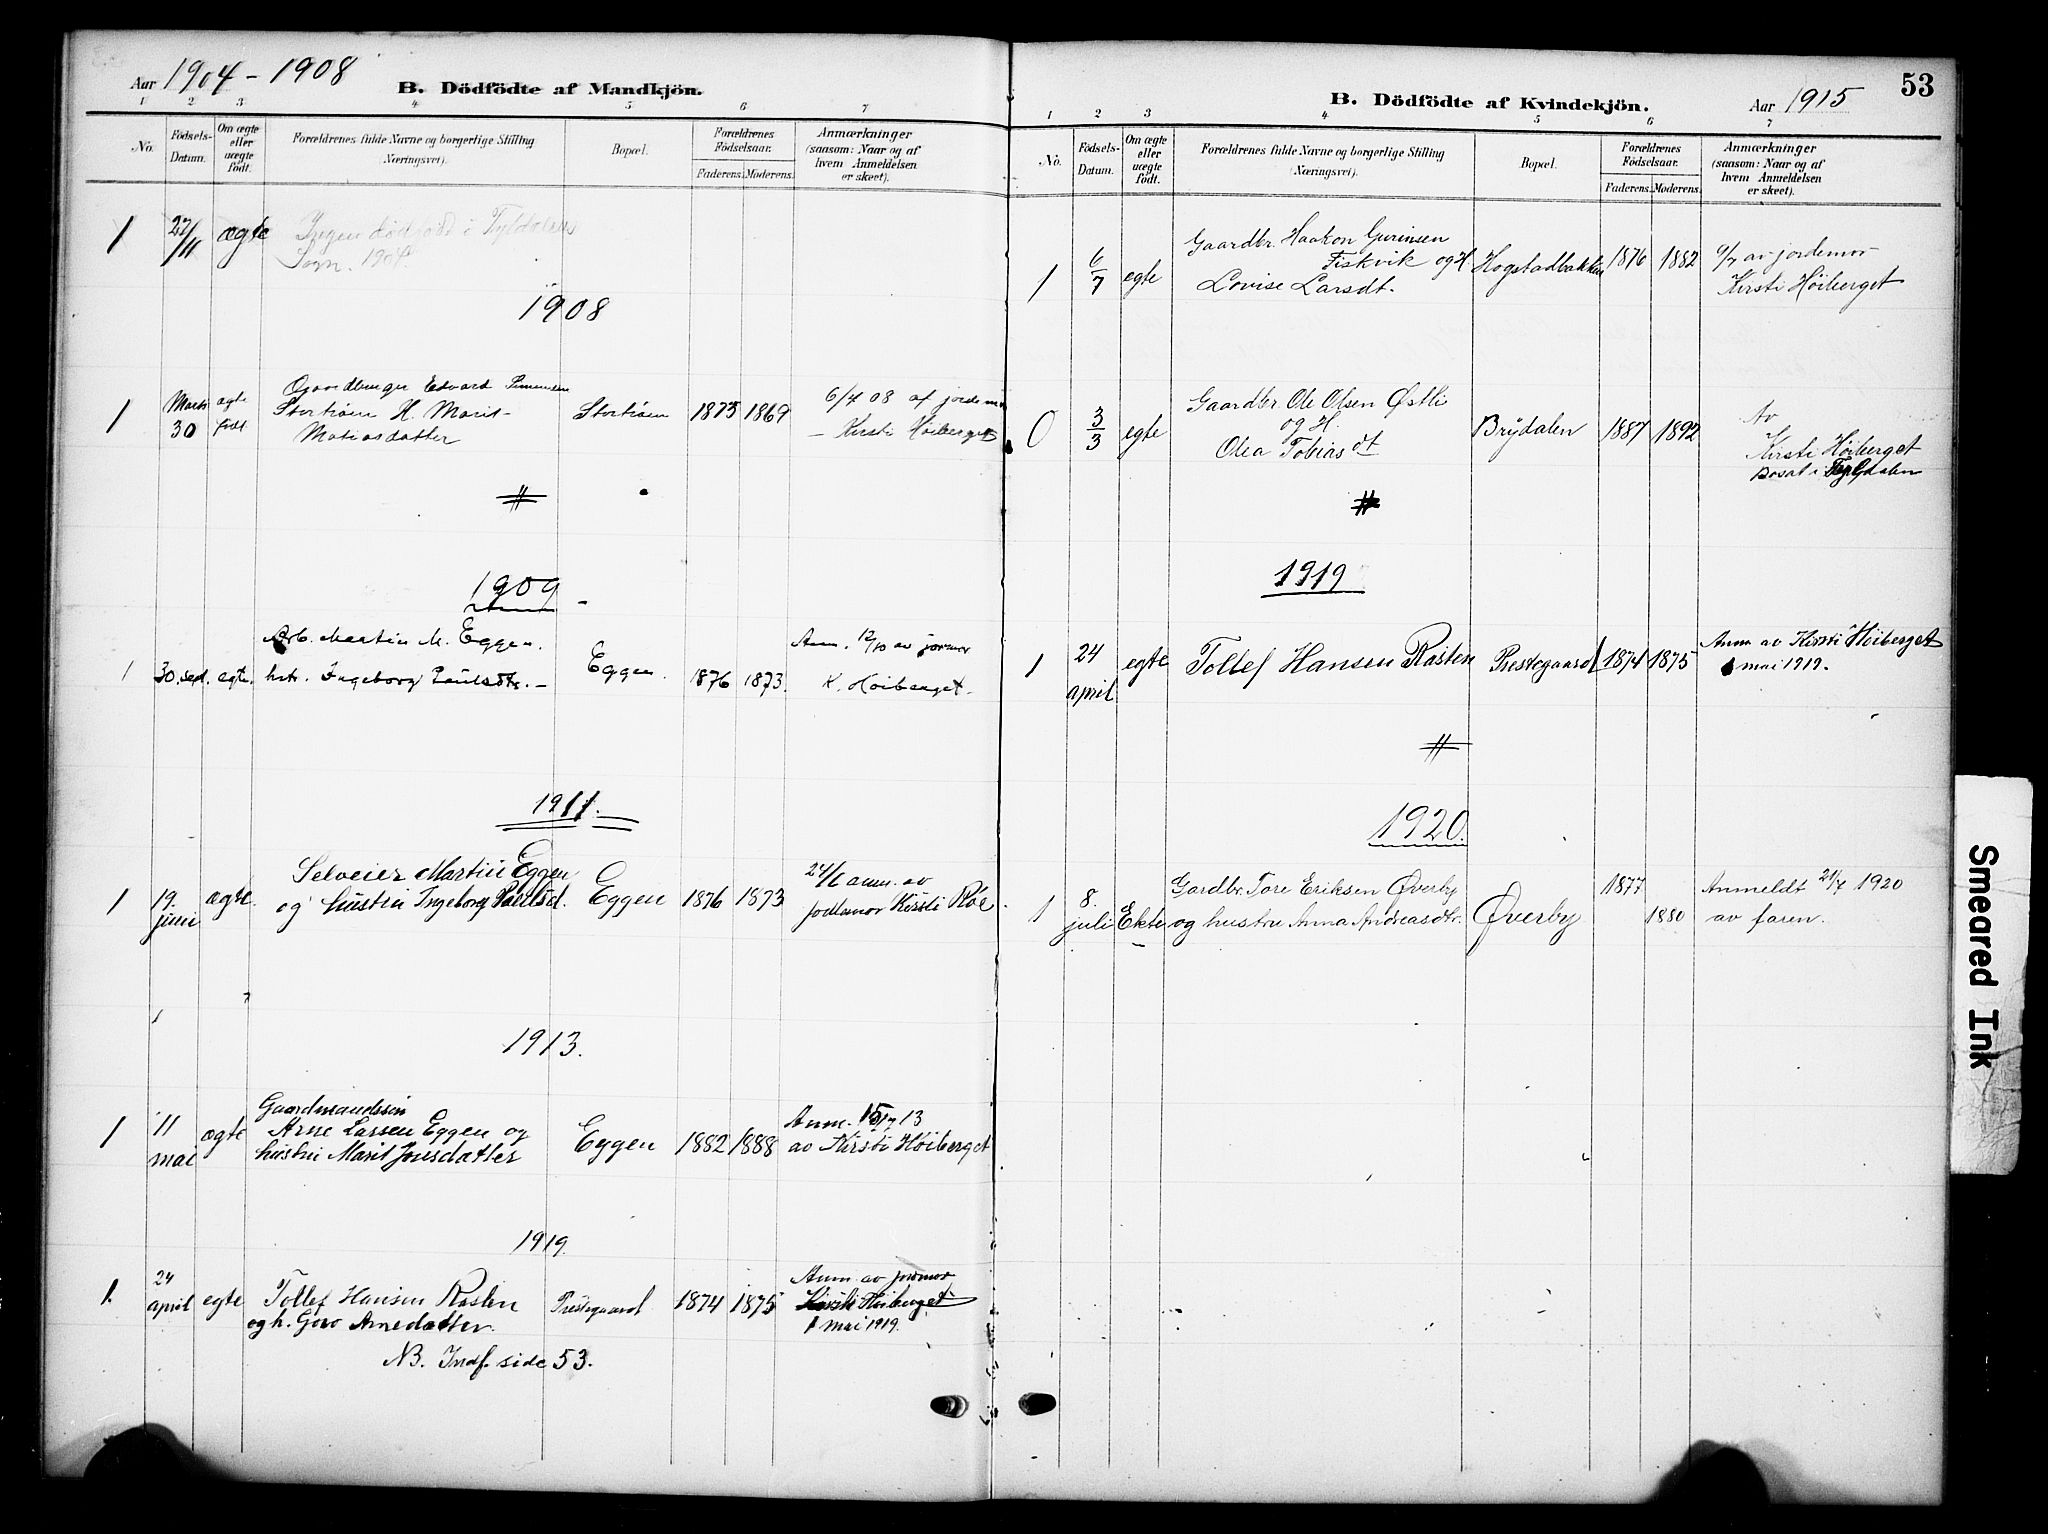 Aar 1904 - 1908
B. Dödfödte af Mandkjön.
1 2 3 4 5 6 7
No.
Födsels-
Datum.
Om ægte
eller
uægte
födt.
Forældrenes fulde Navne og borgerlige Stilling
(Næringsvei).
Bopæl.
Forældrenes
Födselsaar.
Faderens. Moderens.
Anmærkninger
(saasom: Naar og af
hvem Anmeldelsen
er skeet).
1 27/11 ægte Ingen dödfödt i Tyldalens
Sogn. 1904
1908
1 Marts
30
ægte
født
Gaardbruger Edvard Simensen
Storrøen H. Marit
Matiasdatter
1873 1869
6/4 08 af jordemor
- Kirsti Høiberget
1909
1 30. sept. egte. Arb. Martin M. Eggen.
hstr. Ingeborg Paulsdtr. -
Eggen. 1876 1873.
Anm. 12/10 av jormor
K. Høiberget.
1911.
1 19.
juni
ægte.
Selveier Martin Eggen
og hustru Ingeborg Paulsd.
Eggen 1876 1873
24/6 anm. av
jordmor Kirsti Røe
1913.
1 11
mai
ægte
Gaardmandssøn
Arne Larsen Eggen og
hustru Marit Jonsdatter
Eggen 1882 1888
Anm. 13
av Kirsti Høiberget
1919.
1. 24
april
egte
Tollef Hansen Rasten
og h. Goro Arnedatter.
Prestegaard 1874 1875
Anm. av jormor
Kirsti Høiberget
1 mai 1919.
NB. Indf. side 53.
53
B. Dödfödte af Kvindekjön. Aar 1915
1 2 3 4 5 6 7
No.
Födsels-
Datum.
Om ægte
eller
uægte
födt.
Forældrenes fulde Navne og borgerlige Stilling
(Næringsvei).
Bopæl.
Forældrenes
Födselsaar.
Faderens. Moderens.
Anmærkninger
(saasom: Naar og af
hvem Anmeldelsen
er skeet).
1 6/7 egte
Gaardbr. Haakon Gurinsen
Fiskvik og H.
Lovise Larsdt.
Hogstadbakken 1876 1882
6/7 av jordemor
Kirsti Høiberget
0 3/3 egte
Gaardbr Ole Olsen Østli
og H.
Olea Tobiasdt
Brydalen 1887 1892
Av
Kirsti Høiberget
Bosat i Tyldalen
1919
1 24
april
egte Tollef Hansen Rasten Prestegaard 1874 1875
Anm av Kirsti Høiberget
1 mai 1919.
1920.
1 8.
juli
Ekte
Gardbr. Tore Eriksen Øverby
og hustru Anna Andreasdtr.
Øverby
1877
1880
Anmeldt 21/7 1920
av faren.
Smeared Ink